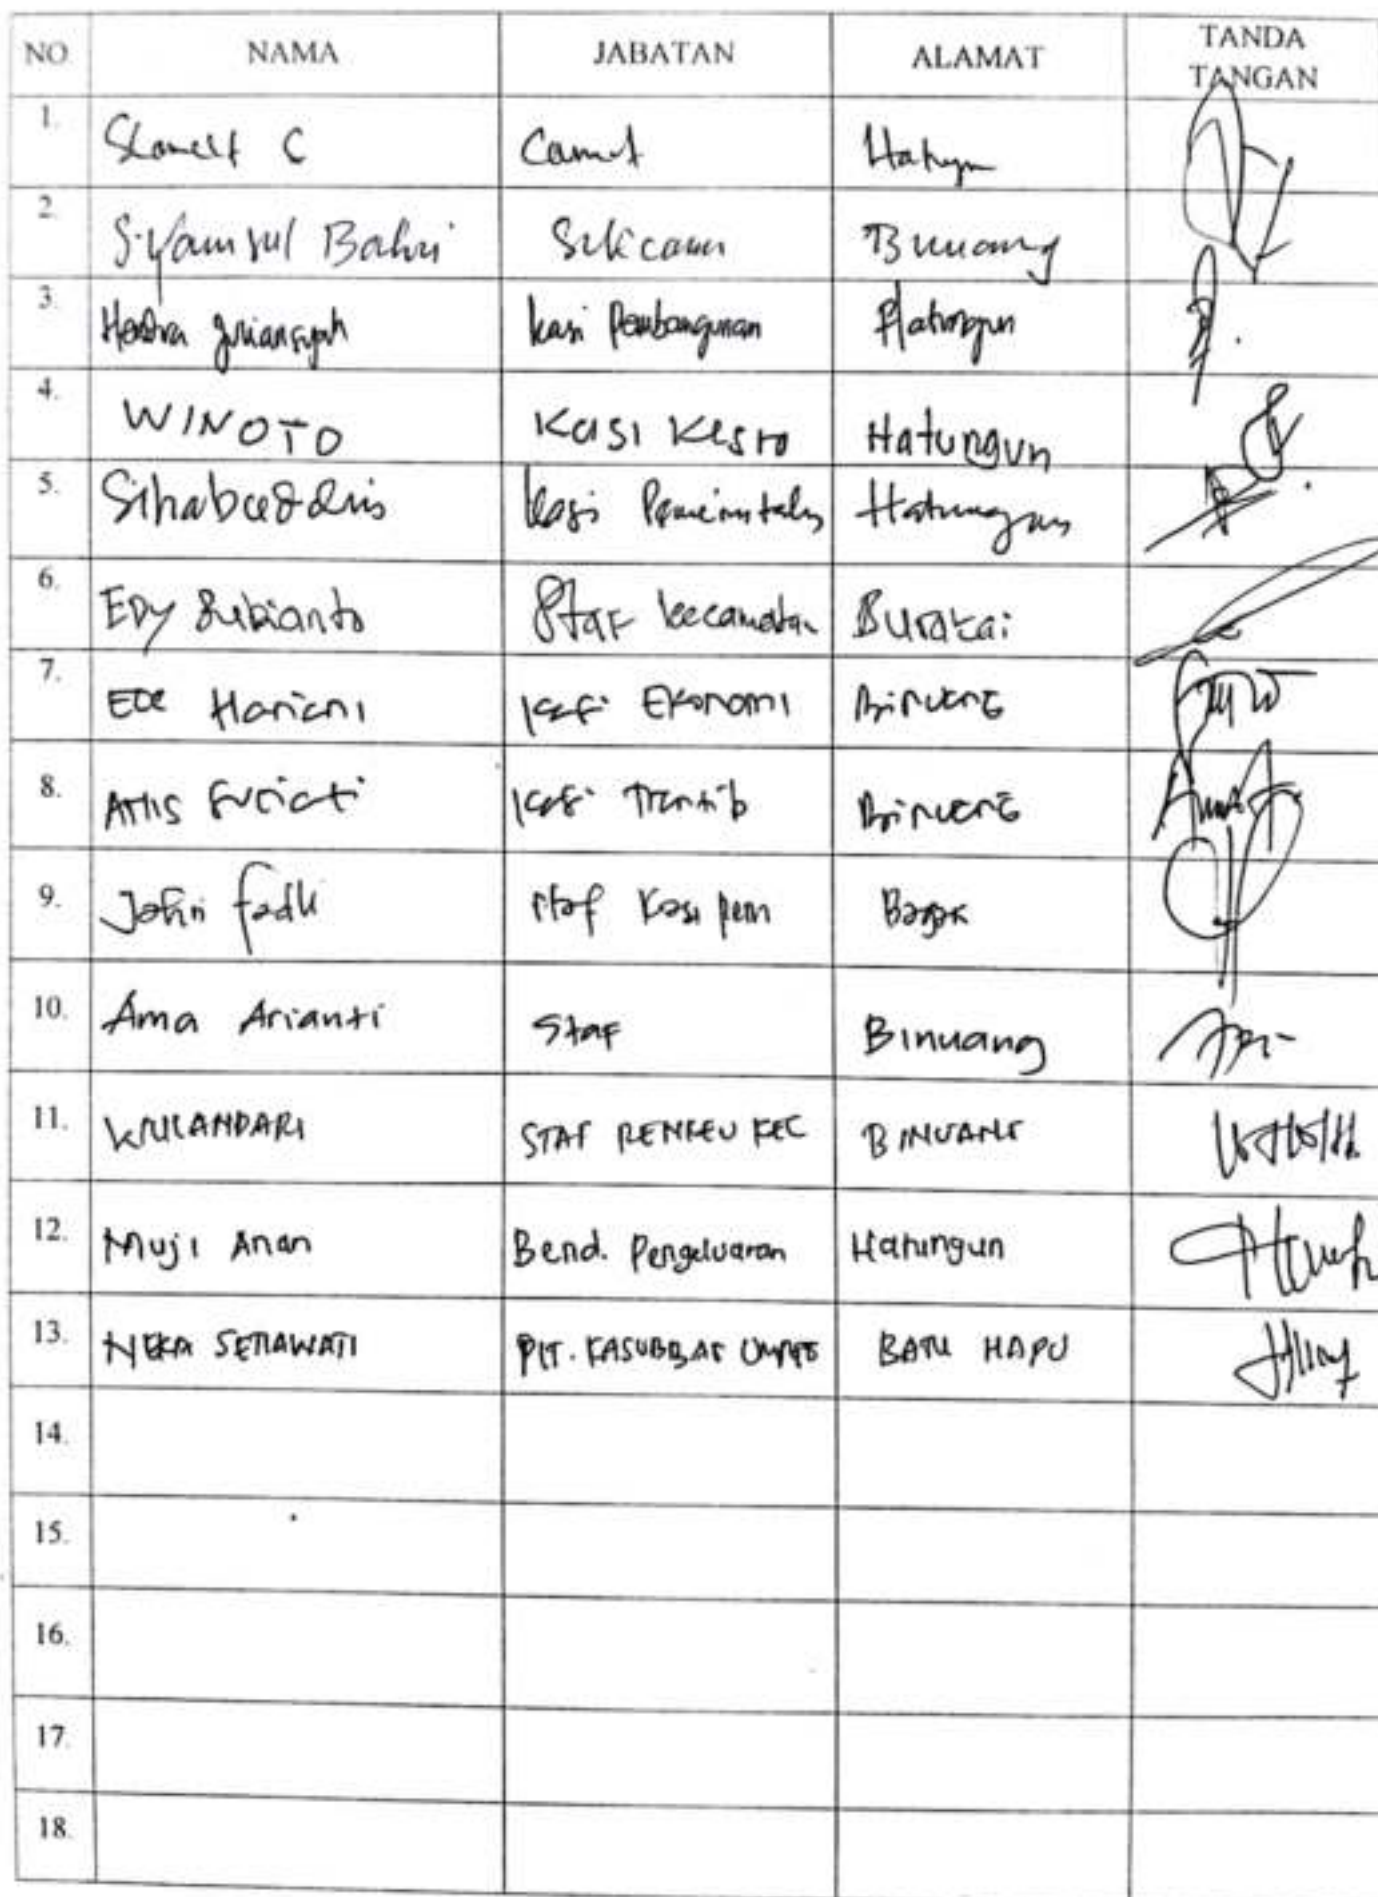 NO. NAMA JABATAN ALAMAT TANDA TANGAN
1. Slamet C Camat
2. Syamsul Bahri Sekcam Binuang
3. Kasi Pembangunan Hatungun
4. WINOTO Kasi Kesra Hatungun
5. Sihabuddin Kasi Pemerintahan Hatungun
6. EDy Subianto Staf kecamatan Burakai
7. Hariani Kasi Ekonomi Binuang
8. Suciati Kasi Trantib Binuang
9. John fadli staf Kasi pem
10. Ama Arianti Staf Binuang
11. WULANDARI STAF RENKEU KEC BINUANG
12. Muji Anan Bend. Pengeluaran Hatungun
13. NEKA SETIAWATI PLT. KASUBBAG BATU HAPU
14.
15.
16.
17.
18.